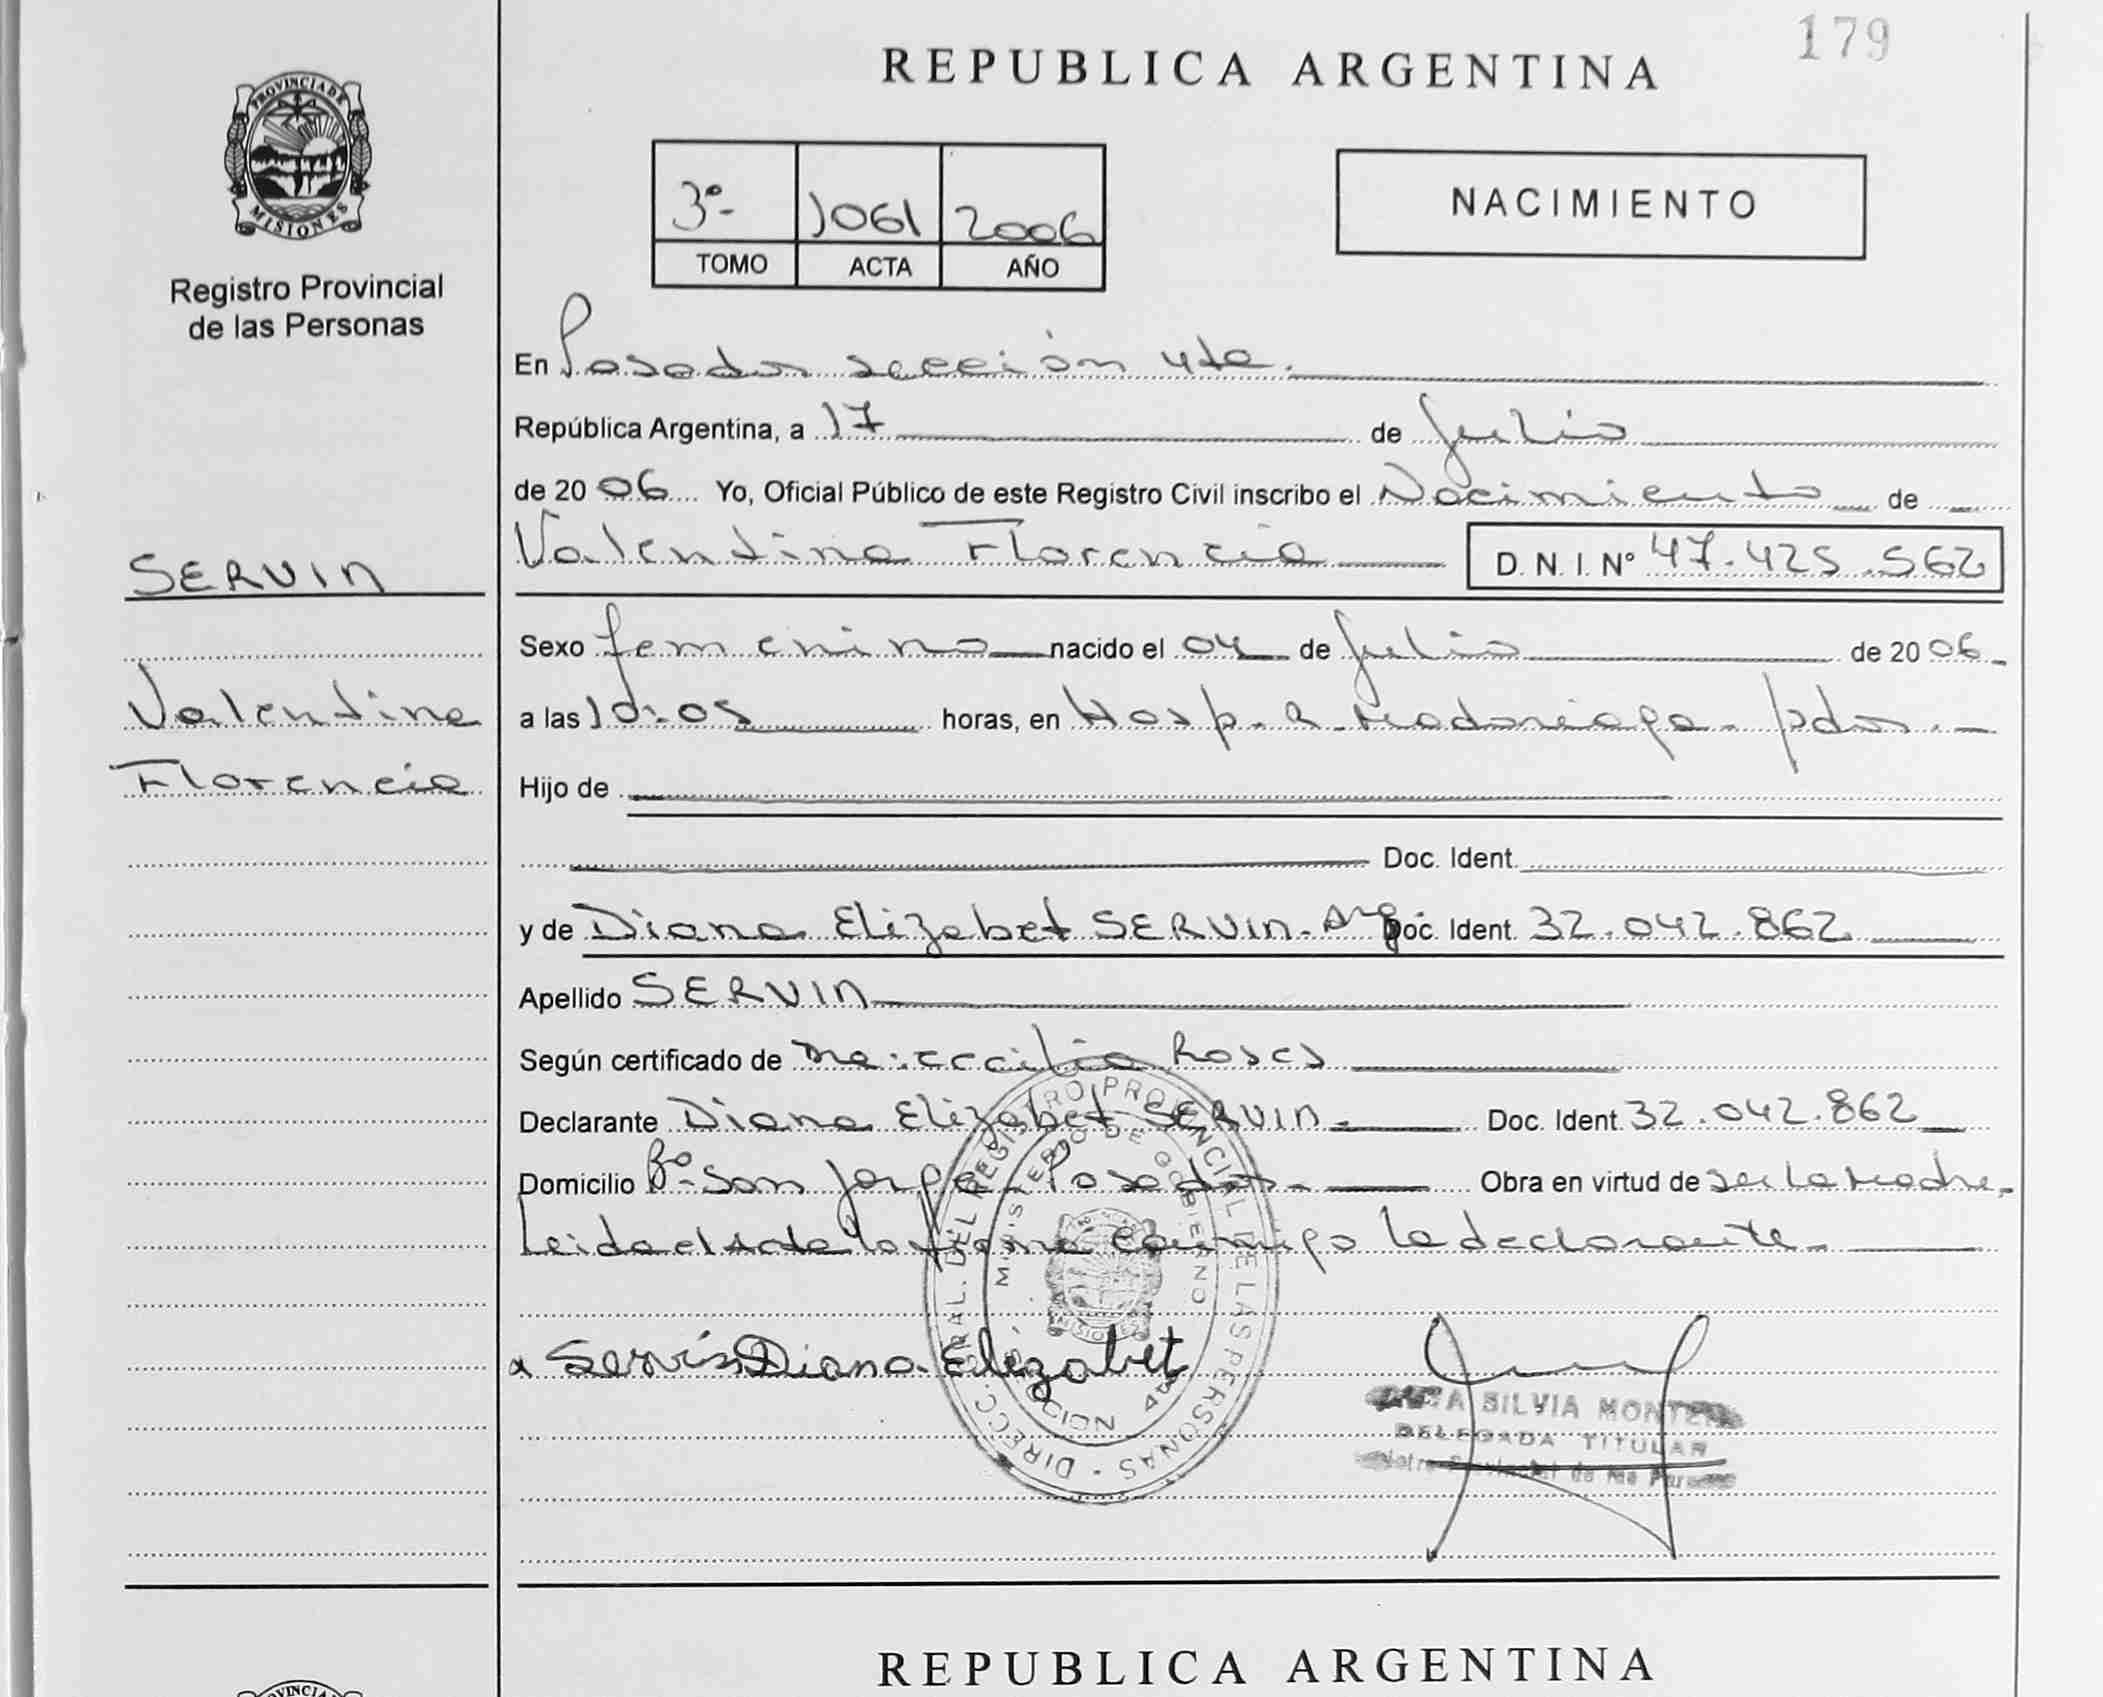 179
REPUBLICA ARGENTINA
PROVINCIA DE
MISIONES
Registro Provincial
de las Personas
3º- 1061 2006
TOMO ACTA AÑO
NACIMIENTO
En Posadas sección 4ta.
República Argentina, a 17 de Julio
de 20 06 Yo, Oficial Público de este Registro Civil inscribo el Nacimiento de
Valentina Florencia D. N. I. Nº 47.425.562
SERVIN
Valentina
Florencia
Sexo femenino nacido el 04 de Julio de 20 06
a las 10:05 horas, en Hosp. R. Madariaga - pdas.
Hijo de
Doc. Ident.
y de Diana Elizabet SERVIN - Arg Doc. Ident. 32.042.862
Apellido SERVIN
Según certificado de Ma. Cecilia Roses
Declarante Diana Elizabet SERVIN - Doc. Ident. 32.042.862
Domicilio Bº San Jorge - Posadas - Obra en virtud de ser la Madre.
Leida el Acta la firma conmigo la declarante
Servin Diana Elizabet
DIRECC. GRAL. DEL REGISTRO PROVINCIAL DE LAS PERSONAS
MINISTERIO DE GOBIERNO
MISIONES
SILVIA
DELEGADA TITULAR
REPUBLICA ARGENTINA